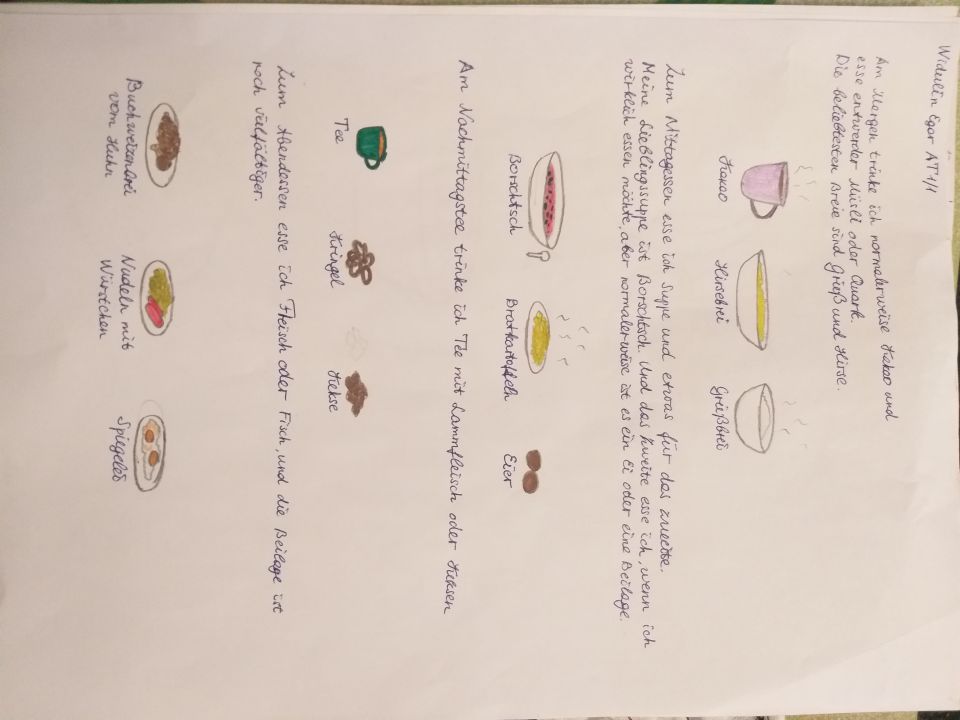 Widulin Egor AT1/1
Am Morgen trinke ich normalerweise Kakao und
esse entwerder Müsli oder Quark.
Die beliebtesten Breie sind Grieß und Hirse.
Kakao
Hirsebrei
Grießbrei
Zum Mittagessen esse ich Suppe und etwas für das zweite.
Meine Lieblingssuppe ist Borschtsch. Und das zweite esse ich, wenn ich
wirklich essen möchte, aber normalerweise ist es ein Ei oder eine Beilage.
Borschtsch
Bratkartoffeln
Eier
Am Nachmittagstee trinke ich Tee mit Lammfleisch oder Keksen
Tee
Kringel
Kekse
Zum Abendessen esse ich Fleisch oder Fisch, und die Beilage ist
noch vielfältiger.
Buchweizenbrei
vom Huhn
Nudeln mit
Würstchen
Spiegelei